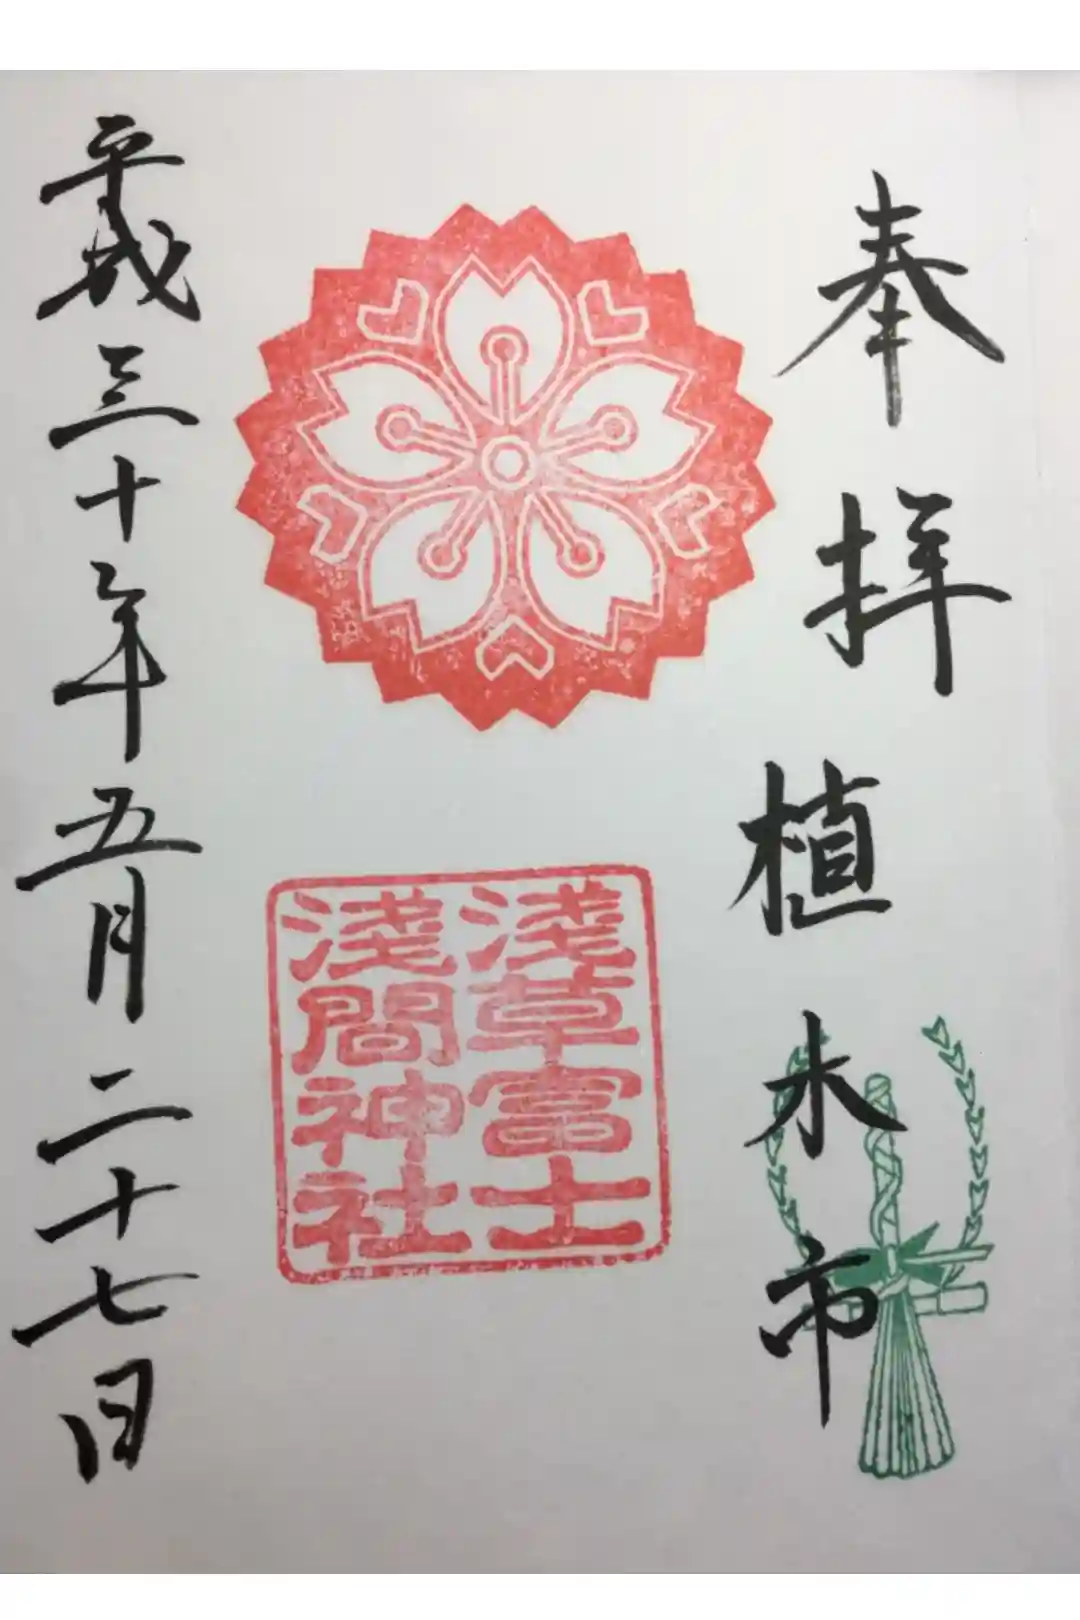 奉拝
植木市
淺草富士
淺間神社
平成三十年五月二十七日